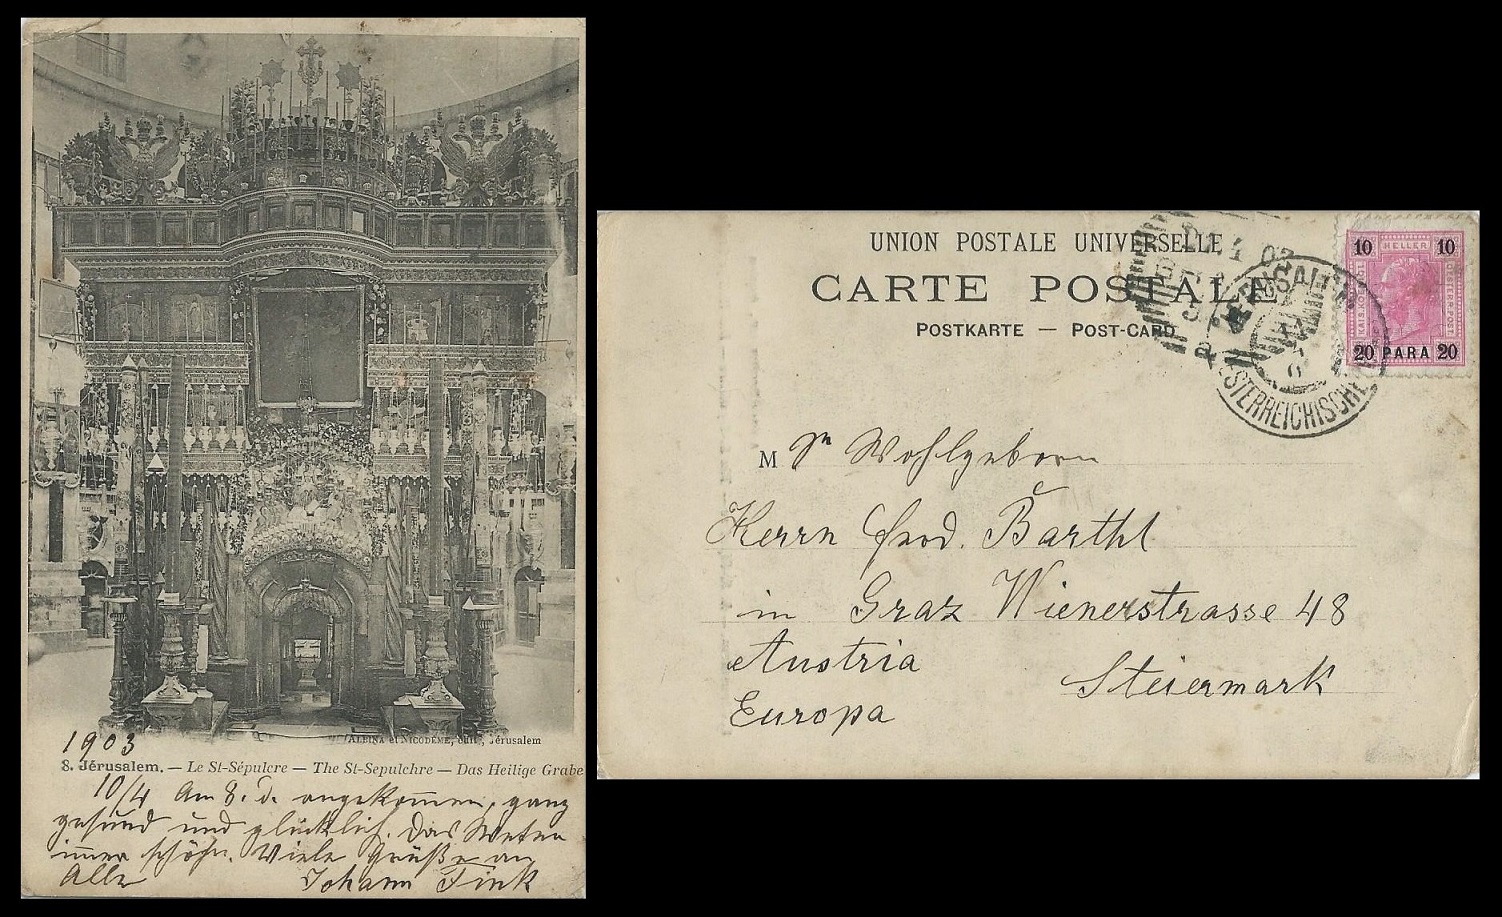 ALBINA et NICODEME, édit., Jérusalem
1903
8. Jérusalem. — Le St-Sépulcre — The St-Sepulchre — Das Heilige Grabe
10/4 Am 8. d. angekommen, ganz
gesund und glücklich. Das Wetter
immer schön. Viele Grüße an
Alle Johann Fink
UNION POSTALE UNIVERSELLE
CARTE POSTALE
POSTKARTE — POST-CARD
10 HELLER 10
KAIS. KÖNIGL.
OESTERR. POST
20 PARA 20
JERUSALEM
ÖSTERREICHISCHE
M Sr Wohlgeborn
Herrn Barthl
in Graz Wienerstrasse 48
Austria Steiermark
Europa